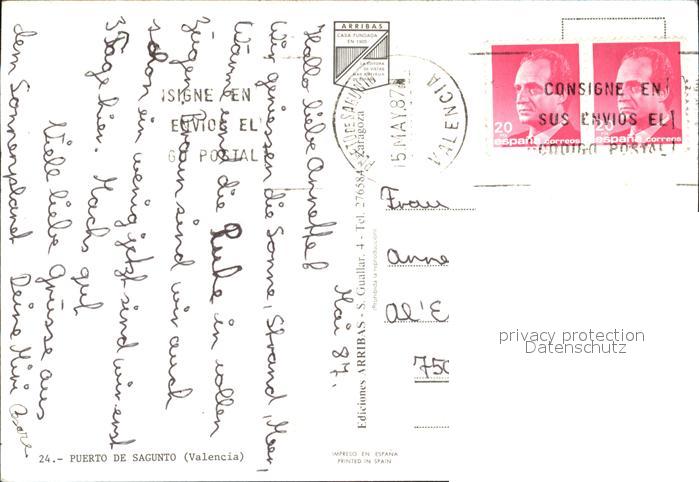 Mai 87.
Hallo liebe Annette!
Wir geniessen die Sonne, Strand, Meer,
Wärme und die Ruhe in vollen
Zügen. Braun sind wir auch
schon ein wenig jetzt sind wir erst
3 Tage hier. Machs gut
Viele liebe Grüsse aus
dem Sonnenplanet Deine Mimi
24.- PUERTO DE SAGUNTO (Valencia)
ARRIBAS
CASA FUNDADA
EN 1905
Ediciones ARRIBAS - S. Guallar, 4 - Tel. 276584 - Zaragoza
Prohibida la reproducción
IMPRESO EN ESPAÑA
PRINTED IN SPAIN
ISIGNE EN
ENVIOS EL
GO POSTAL
TO DE SAGUNTO
15 MAY.87
VALENCIA
20
españa correos
20
españa correos
CONSIGNE EN
SUS ENVIOS EL
CODIGO POSTAL
Frau
Anne
Al'E
750
privacy protection
Datenschutz